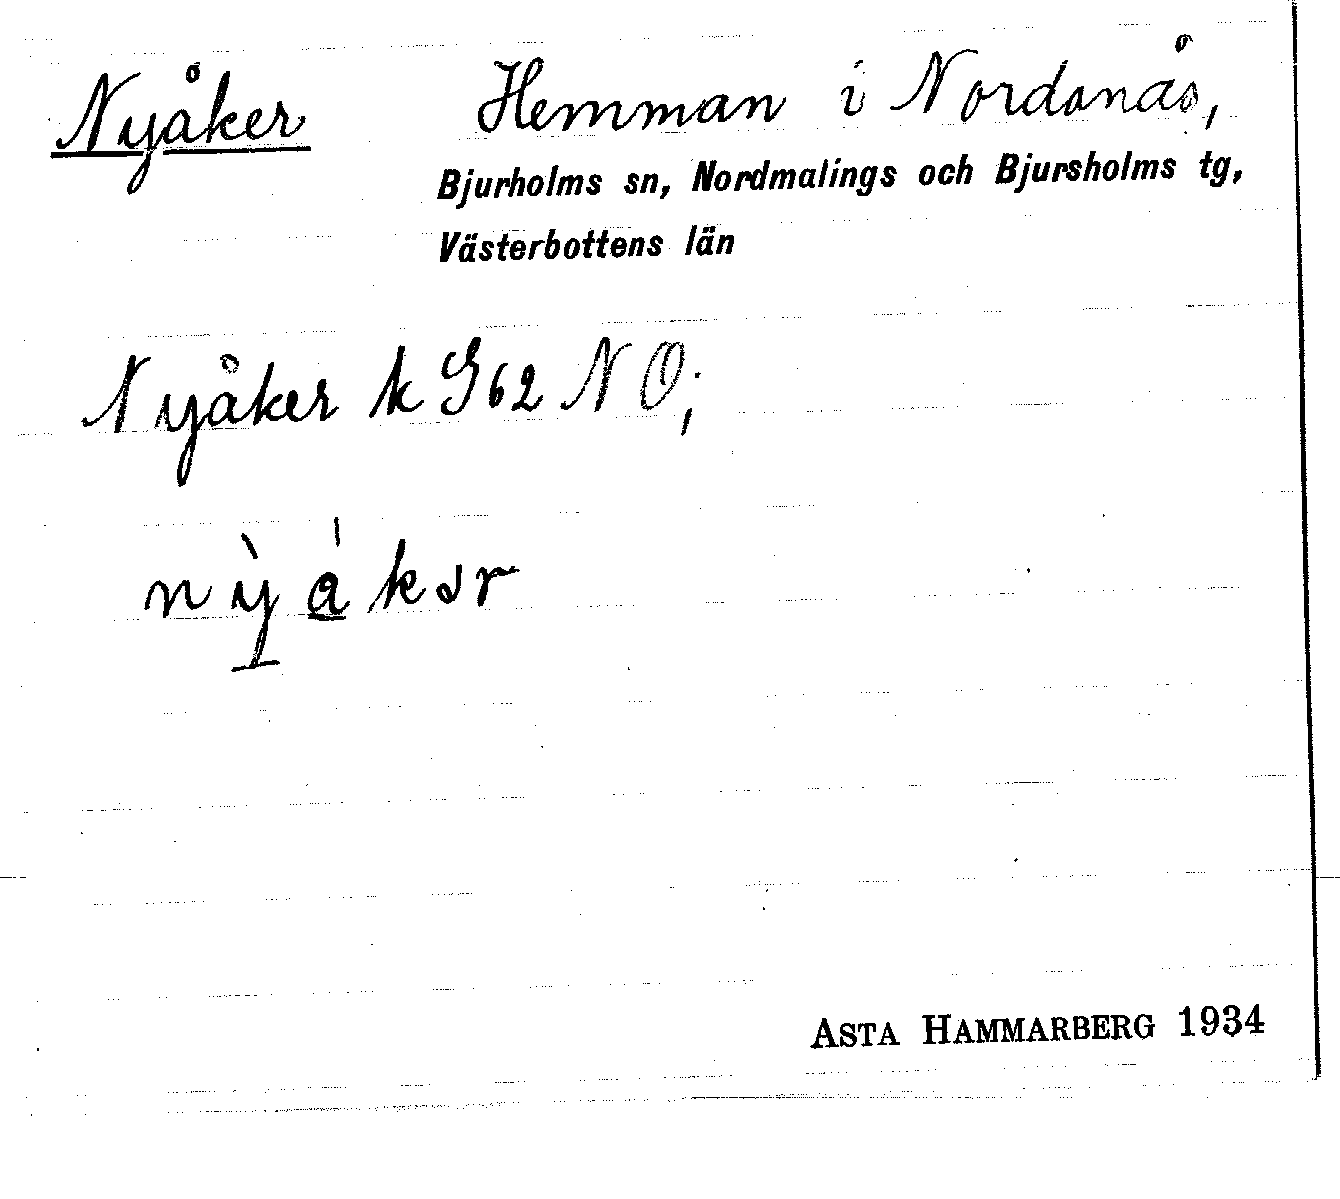 Nyåker Hemman i Nordanås,
Bjurholms sn, Nordmalings och Bjursholms tg,
Västerbottens län
Nyåker k G62 NO;
ASTA HAMMARBERG 1934